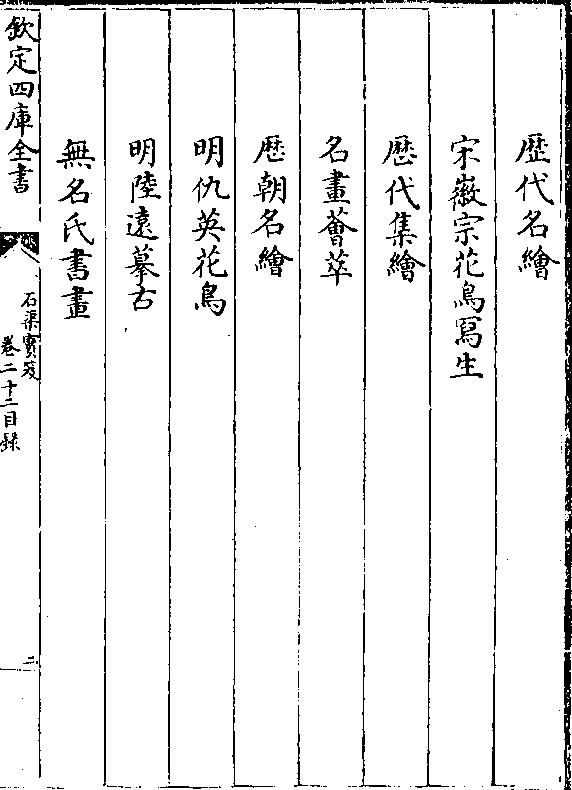 歴代名繪
宋徽宗花鳥寫生
歴代集繪
名畫薈萃
歴朝名繪
明仇英花鳥
明陸遠摹古
無名氏書畫
欽定四庫全書
石渠寶笈
卷二十二目録
二